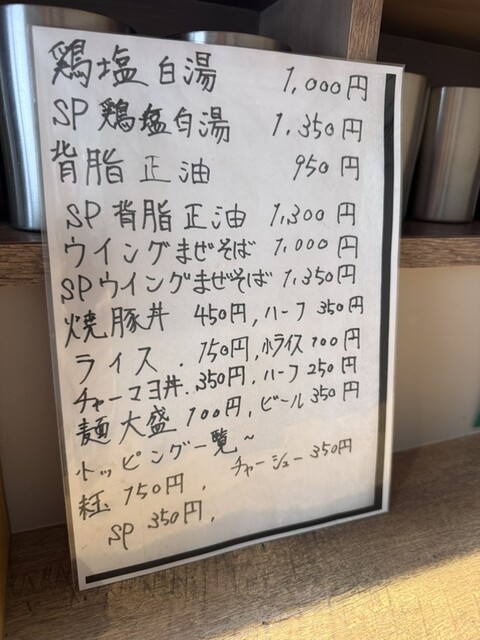 鶏塩白湯 1,000円
SP鶏塩白湯 1,350円
背脂正油 950円
SP背脂正油 1,300円
ウイングまぜそば 1,000円
SPウイングまぜそば 1,350円
焼豚丼 450円,ハーフ350円
ライス.150円,小ライス100円
チャーマヨ丼.350円,ハーフ250円
麺大盛100円,ビール350円
トッピング一覧~
チャーシュー350円
150円,
SP 350円,